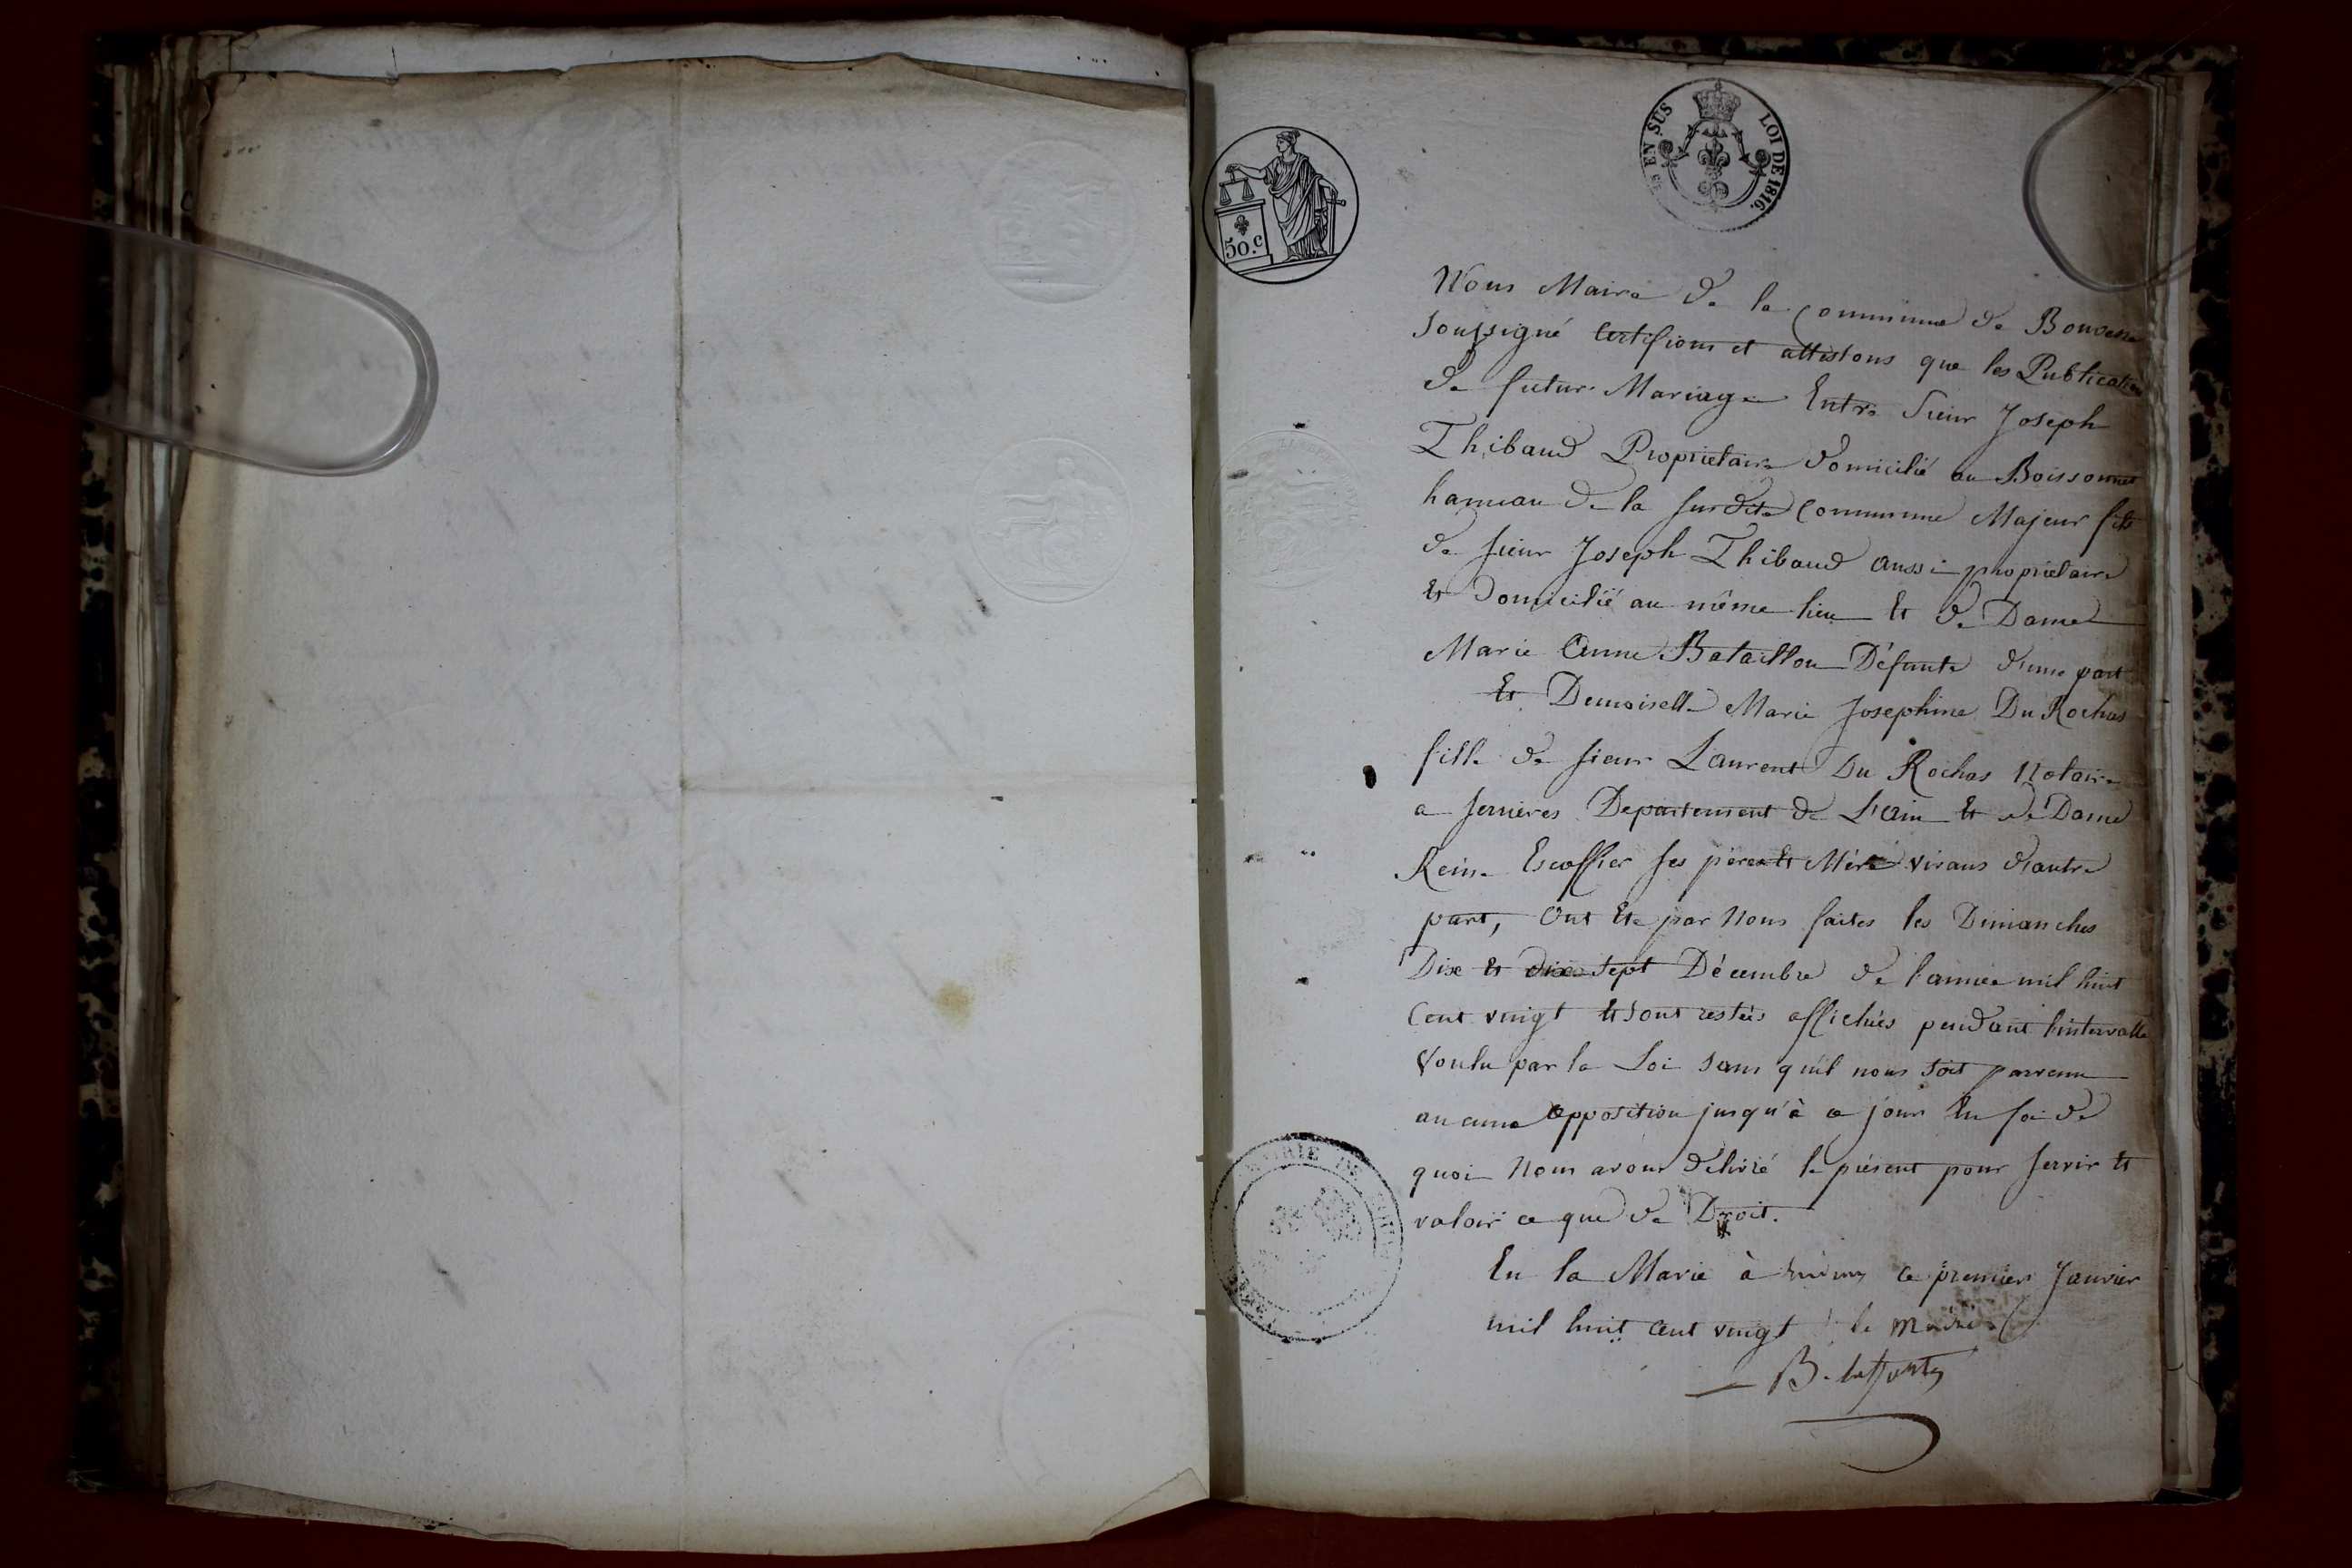 EN SUS LOI DE 1816.
50.c
Nous Maire de la Commune de Bouvesse
soussigné Certifions et attestons que les Publication
de futur Mariage Entre Sieur Joseph
Thibaud Proprietaire domicilié au Boissonnet
hameau de la susdite Commune Majeur fils
de sieur Joseph Thibaud aussi proprietaire
et domicilié au même lieu et de Dame
Marie Anne Bataillon Défunte d'une part
Et Demoiselle Marie Josephine Du Rochas
fille de sieur Laurent Du Rochas Notaire
a Serrieres Departement de L'ain et de Dame
Reine Escoffier ses père et Mère vivans d'autre
part, Ont Ete par Nous faites les Dimanches
Dix et dix sept Décembre de l'année mil huit
Cent vingt et sont restées affichées pendant l'intervalle
Voulu par la Loi sans qu'il nous soit parvenu
aucune opposition jusqu'à ce jour En foi de
quoi Nous avons délivré le présent pour servir et
valoir ce que de Droit.
En la Marie à ce premier Janvier
mil huit cent vingt le maire
MAIRIE DE